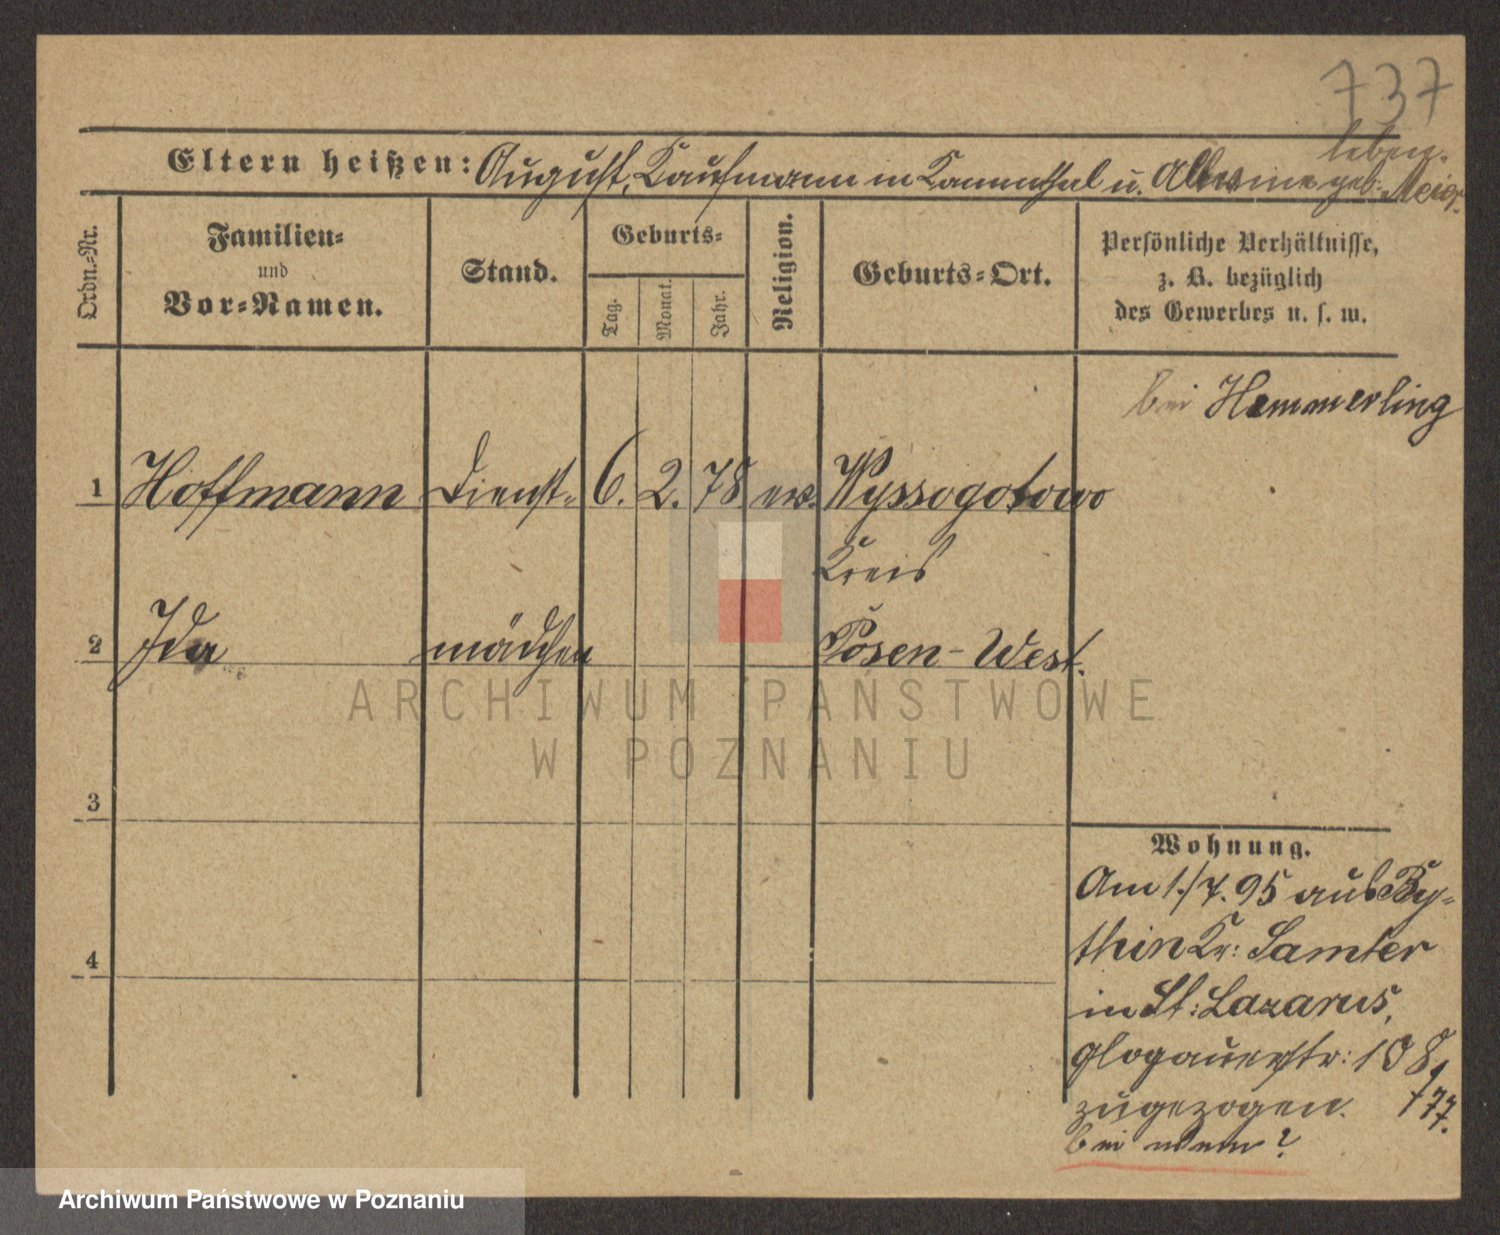 737
leben.
Eltern heißen: August, Kaufmann in Kammthal u. Alwine geb: Meier.
Ordn.-Nr.
Familien-
und
Vor-Namen.
Stand.
Geburts-
Tag.
Monat.
Jahr.
Religion.
Geburts-Ort.
Persönliche Verhältnisse,
z. B. bezüglich
des Gewerbes u. s. w.
bei Hemmerling
1 Hoffmann Dienst- 6. 2. 78 ev. Wyssogotowo
Kreis
2 Ida mädchen Posen-West.
ARCHIWUM PAŃSTWOWE
W POZNANIU
3
Wohnung.
Am 1./7. 95 aus By-
thin Kr: Samter
in St: Lazarus,
4
Glogauerstr: 108,
zugezogen. 777.
bei wem?
Archiwum Państwowe w Poznaniu